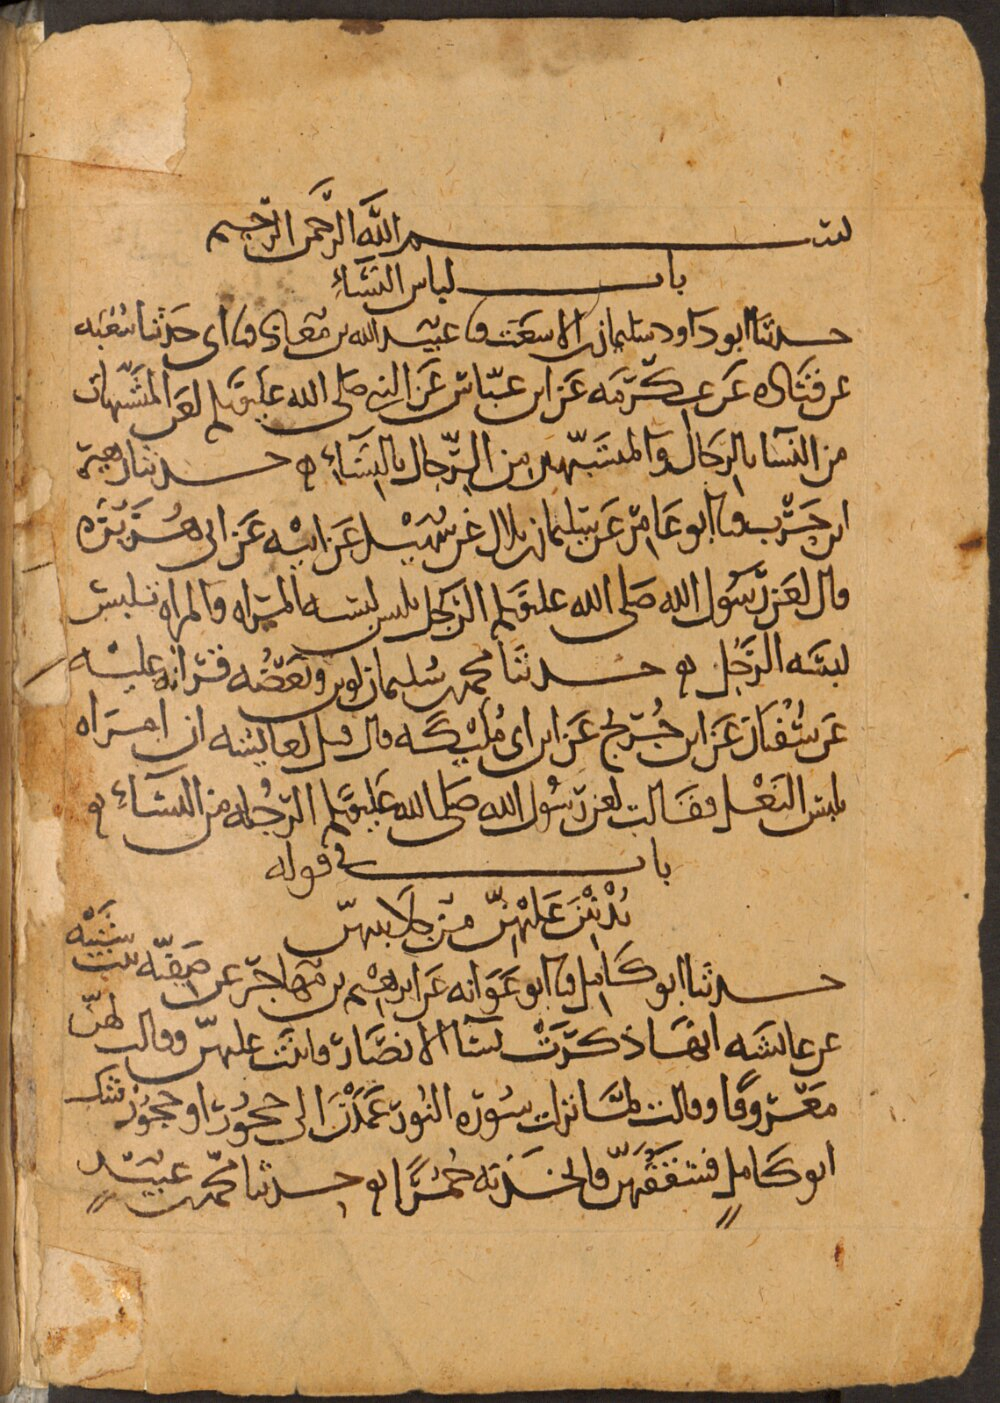 بسم الله الرحمن الرحيم
باب لباس النساء
حدثنا ابو داود سليمن بن الاشعث قال عبيد الله بن معاذ قال ابى حدثنا شعبه
عن قتاده عن عكرمه عن ابن عباس عن النبي صلى الله عليه وسلم لعن المتشبهات
من النسا بالرجال والمتشبهين من الرجال بالنساء ه حدثنا زهير
ابن حرب قال ابو عامر عن سليمان بن بلال عن سهيل عن ابيه عن ابى هريره
قال لعن رسول الله صلى الله عليه وسلم الرجل يلبس لبسه المراه والمراه تلبس
لبسه الرجل ه حدثنا محمد بن سليمان لوين وبعضه قراته عليه
عن سفيان عن ابن جريج عن ابن ابى مليكه قال قيل لعايشه ان امراه
تلبس النعل فقالت لعن رسول الله صلى الله عليه وسلم الرجله من النساء ه
باب في قوله
يدنين عليهن من جلابيبهن
حدثنا ابو كامل قال ابو عوانه عن ابرهيم بن مهاجر عن صفيه بنت شيبه
عن عائشه انها ذكرت نسا الانصار فاثنت عليهن وقالت لهن
معروفا وقالت لما نزلت سوره النور عمدن الى حجور او حجوز شك
ابو كامل فشققنهن فاتخذنه خمرا ه حدثنا محمد بن عبيد